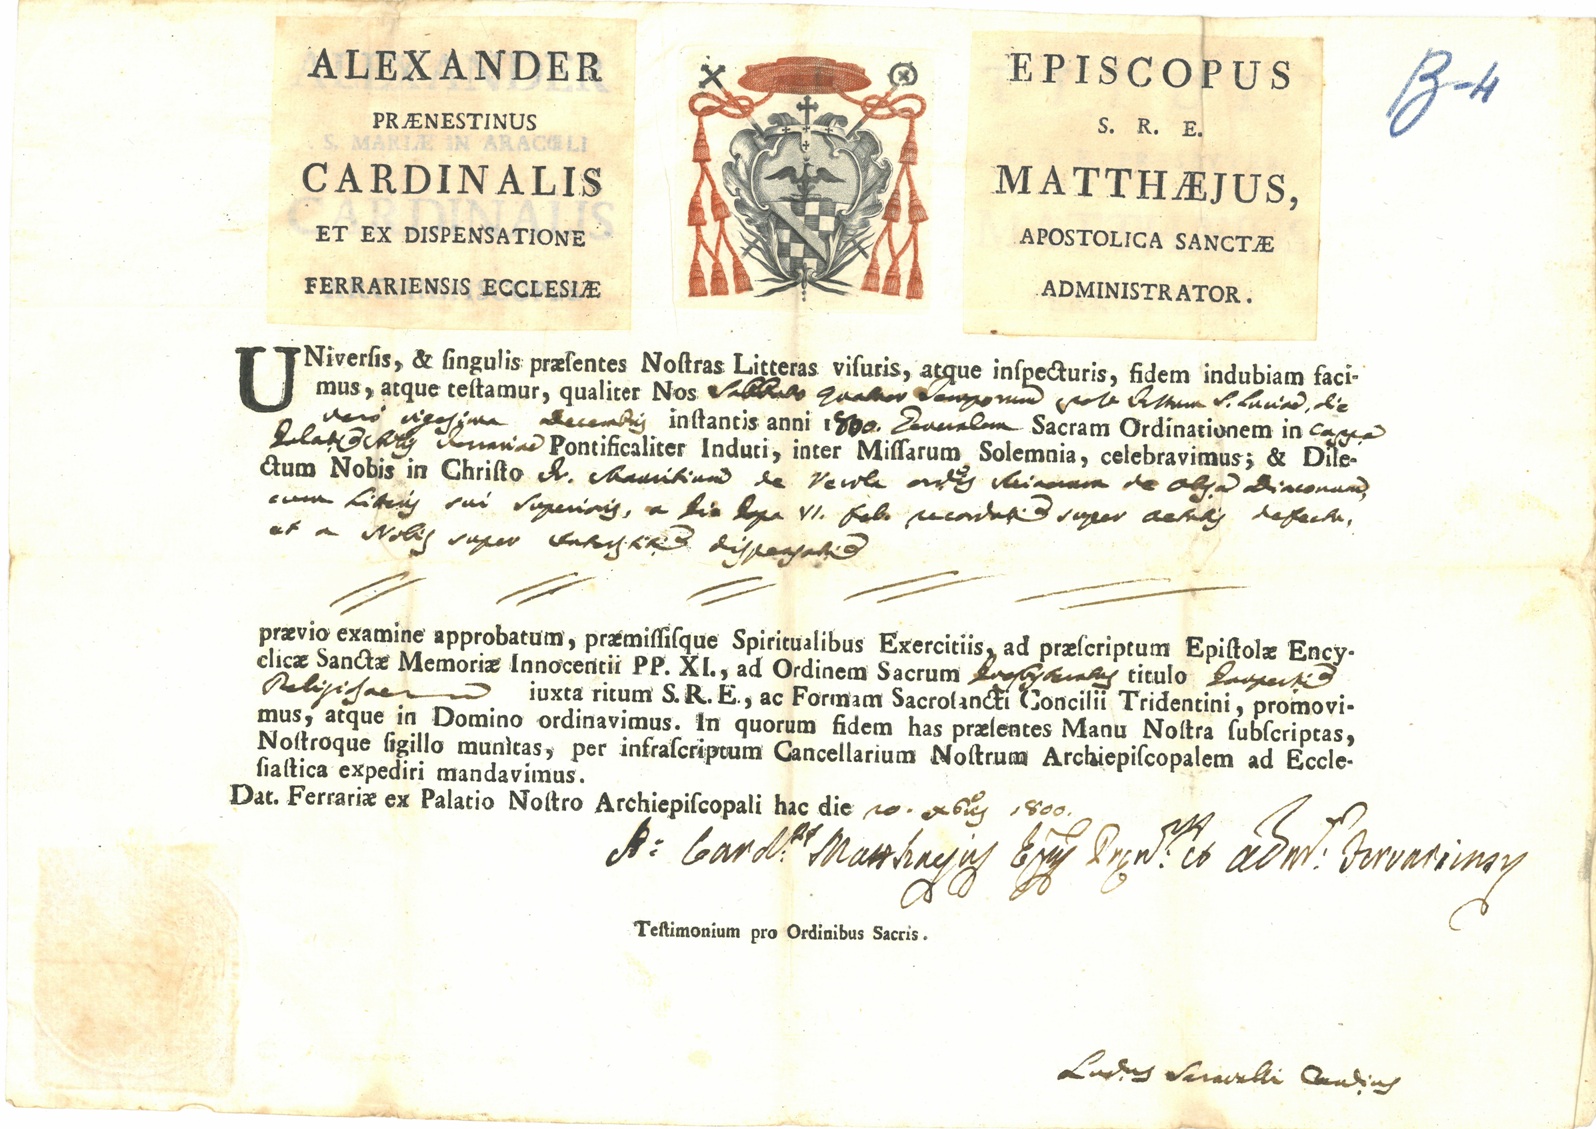 ALEXANDER EPISCOPUS
PRÆNESTINUS S. R. E.
CARDINALIS MATTHÆJUS,
ET EX DISPENSATIONE APOSTOLICA SANCTÆ
FERRARIENSIS ECCLESIÆ ADMINISTRATOR.
B-4
UNiversis, & singulis præsentes Nostras Litteras visuris, atque inspecturis, fidem indubiam faci-
mus, atque testamur, qualiter Nos Sabbato quatuor Temporum post festum S. Luciæ, die
vero vigesima Decembris instantis anni 1800. Generalem Sacram Ordinationem in Cappa
Ferrariæ Pontificaliter Induti, inter Missarum Solemnia, celebravimus; & Dile-
ctum Nobis in Christo Fr. Mauritium de ordis Minorum de Obsa Diaconum,
cum Litteris sui Superioris, a Pio Papa VI. fel. record super ætatis defectu,
et a Nobis super dispensat
prævio examine approbatum, præmissisque Spiritualibus Exercitiis, ad præscriptum Epistolæ Ency-
clicæ Sanctæ Memoriæ Innocentii PP. XI., ad Ordinem Sacrum Presbyteratus titulo Paupert
Religiosae iuxta ritum S. R. E., ac Formam Sacrosancti Concilii Tridentini, promovi-
mus, atque in Domino ordinavimus. In quorum fidem has præsentes Manu Nostra subscriptas,
Nostroque sigillo munitas, per infrascriptum Cancellarium Nostrum Archiepiscopalem ad Eccle-
siastica expediri mandavimus.
Dat. Ferrariæ ex Palatio Nostro Archiepiscopali hac die 20. Xbris 1800.
A: Card.lis Matthæjus Epus Præn. et Adm.r Ferrariensis
Testimonium pro Ordinibus Sacris.